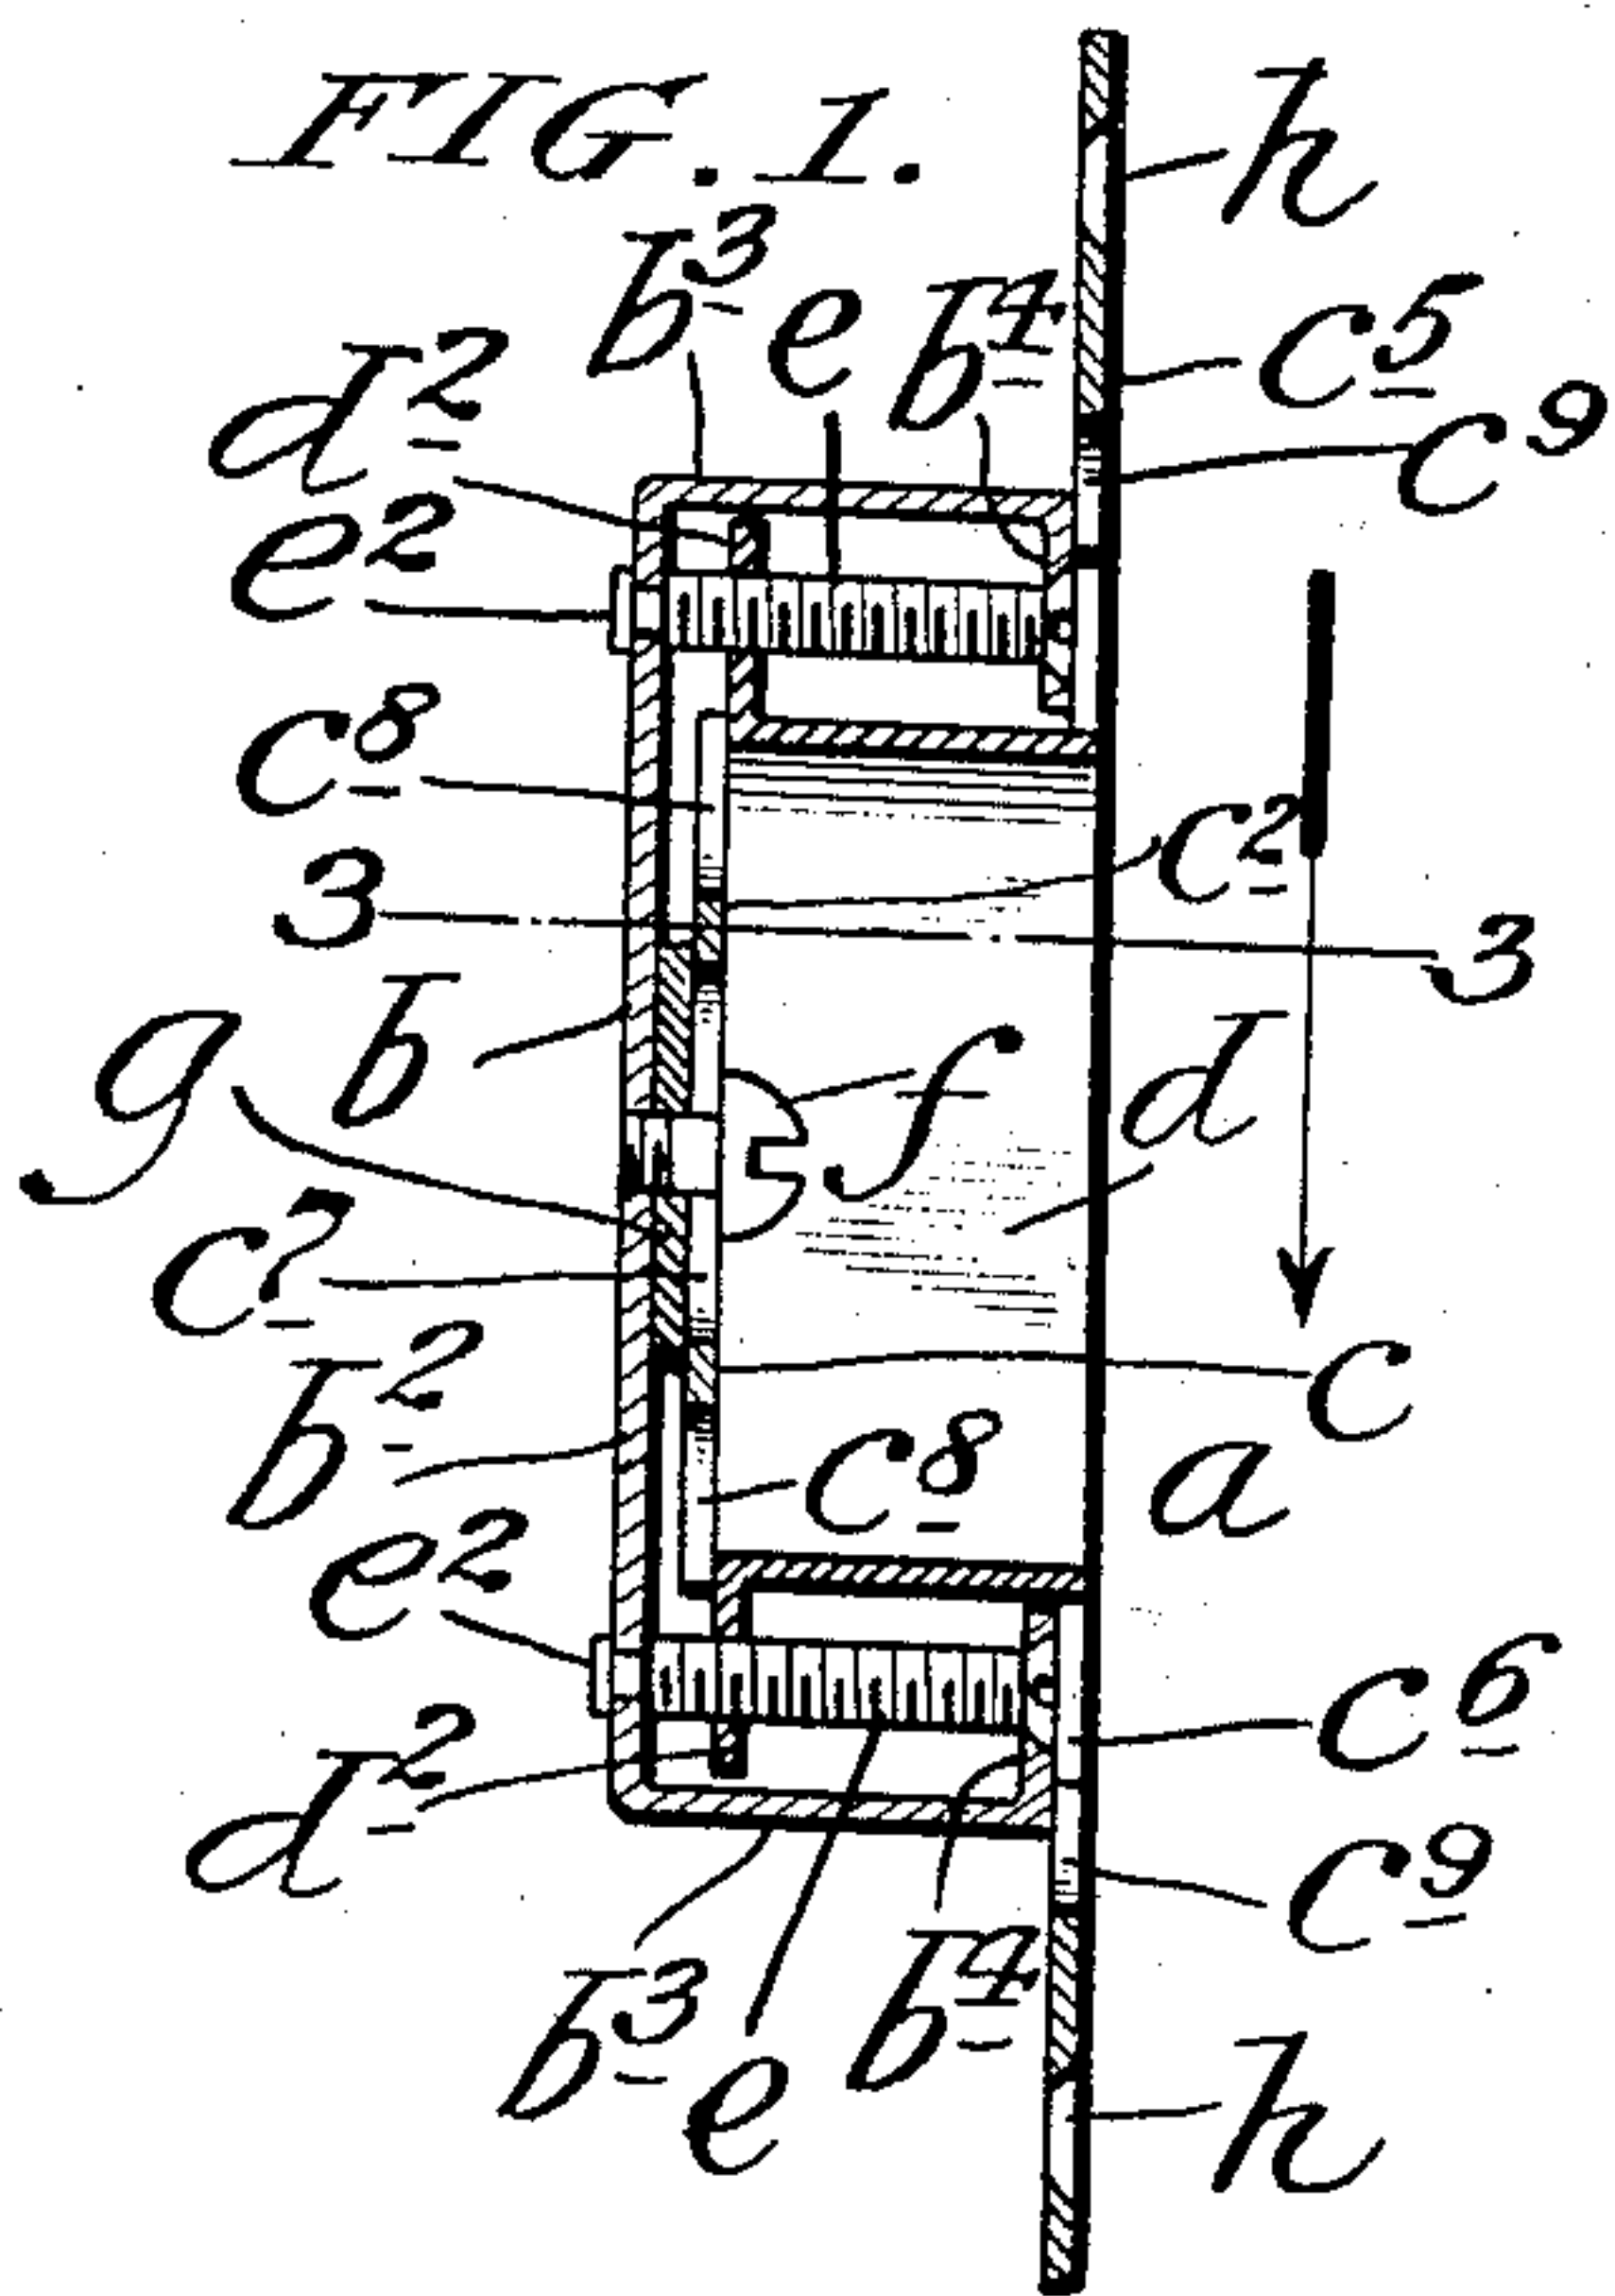 FIG. 1.
h
b³ e b⁴
c⁵
d²
c⁹
e²
c⁸
c²
3
3
b
g
f
d
c⁷
c
b²
c⁸
a
e²
c⁶
d²
c⁹
b³ e b⁴
h